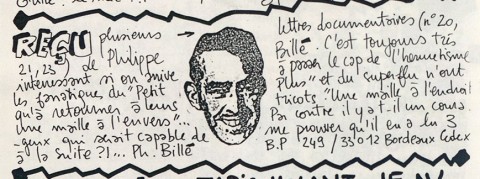 REÇU plusieurs → lettres documentaires (n° 20,
21, 23 de Philippe Billé. C'est toujours très
intéressant si on arrive à passer le cap de l'hermétisme
les fanatiques du "Petit Plus" et du superflu n'ont
qu'à retourner à leurs tricots "Une maille à l'endroit
Une maille à l'envers"... Par contre il y at-il un coura-
-geux qui serait capable de me prouver qu'il en a lu 3
à la suite ?!... Ph. Billé B.P 249 / 33012 Bordeaux Cedex